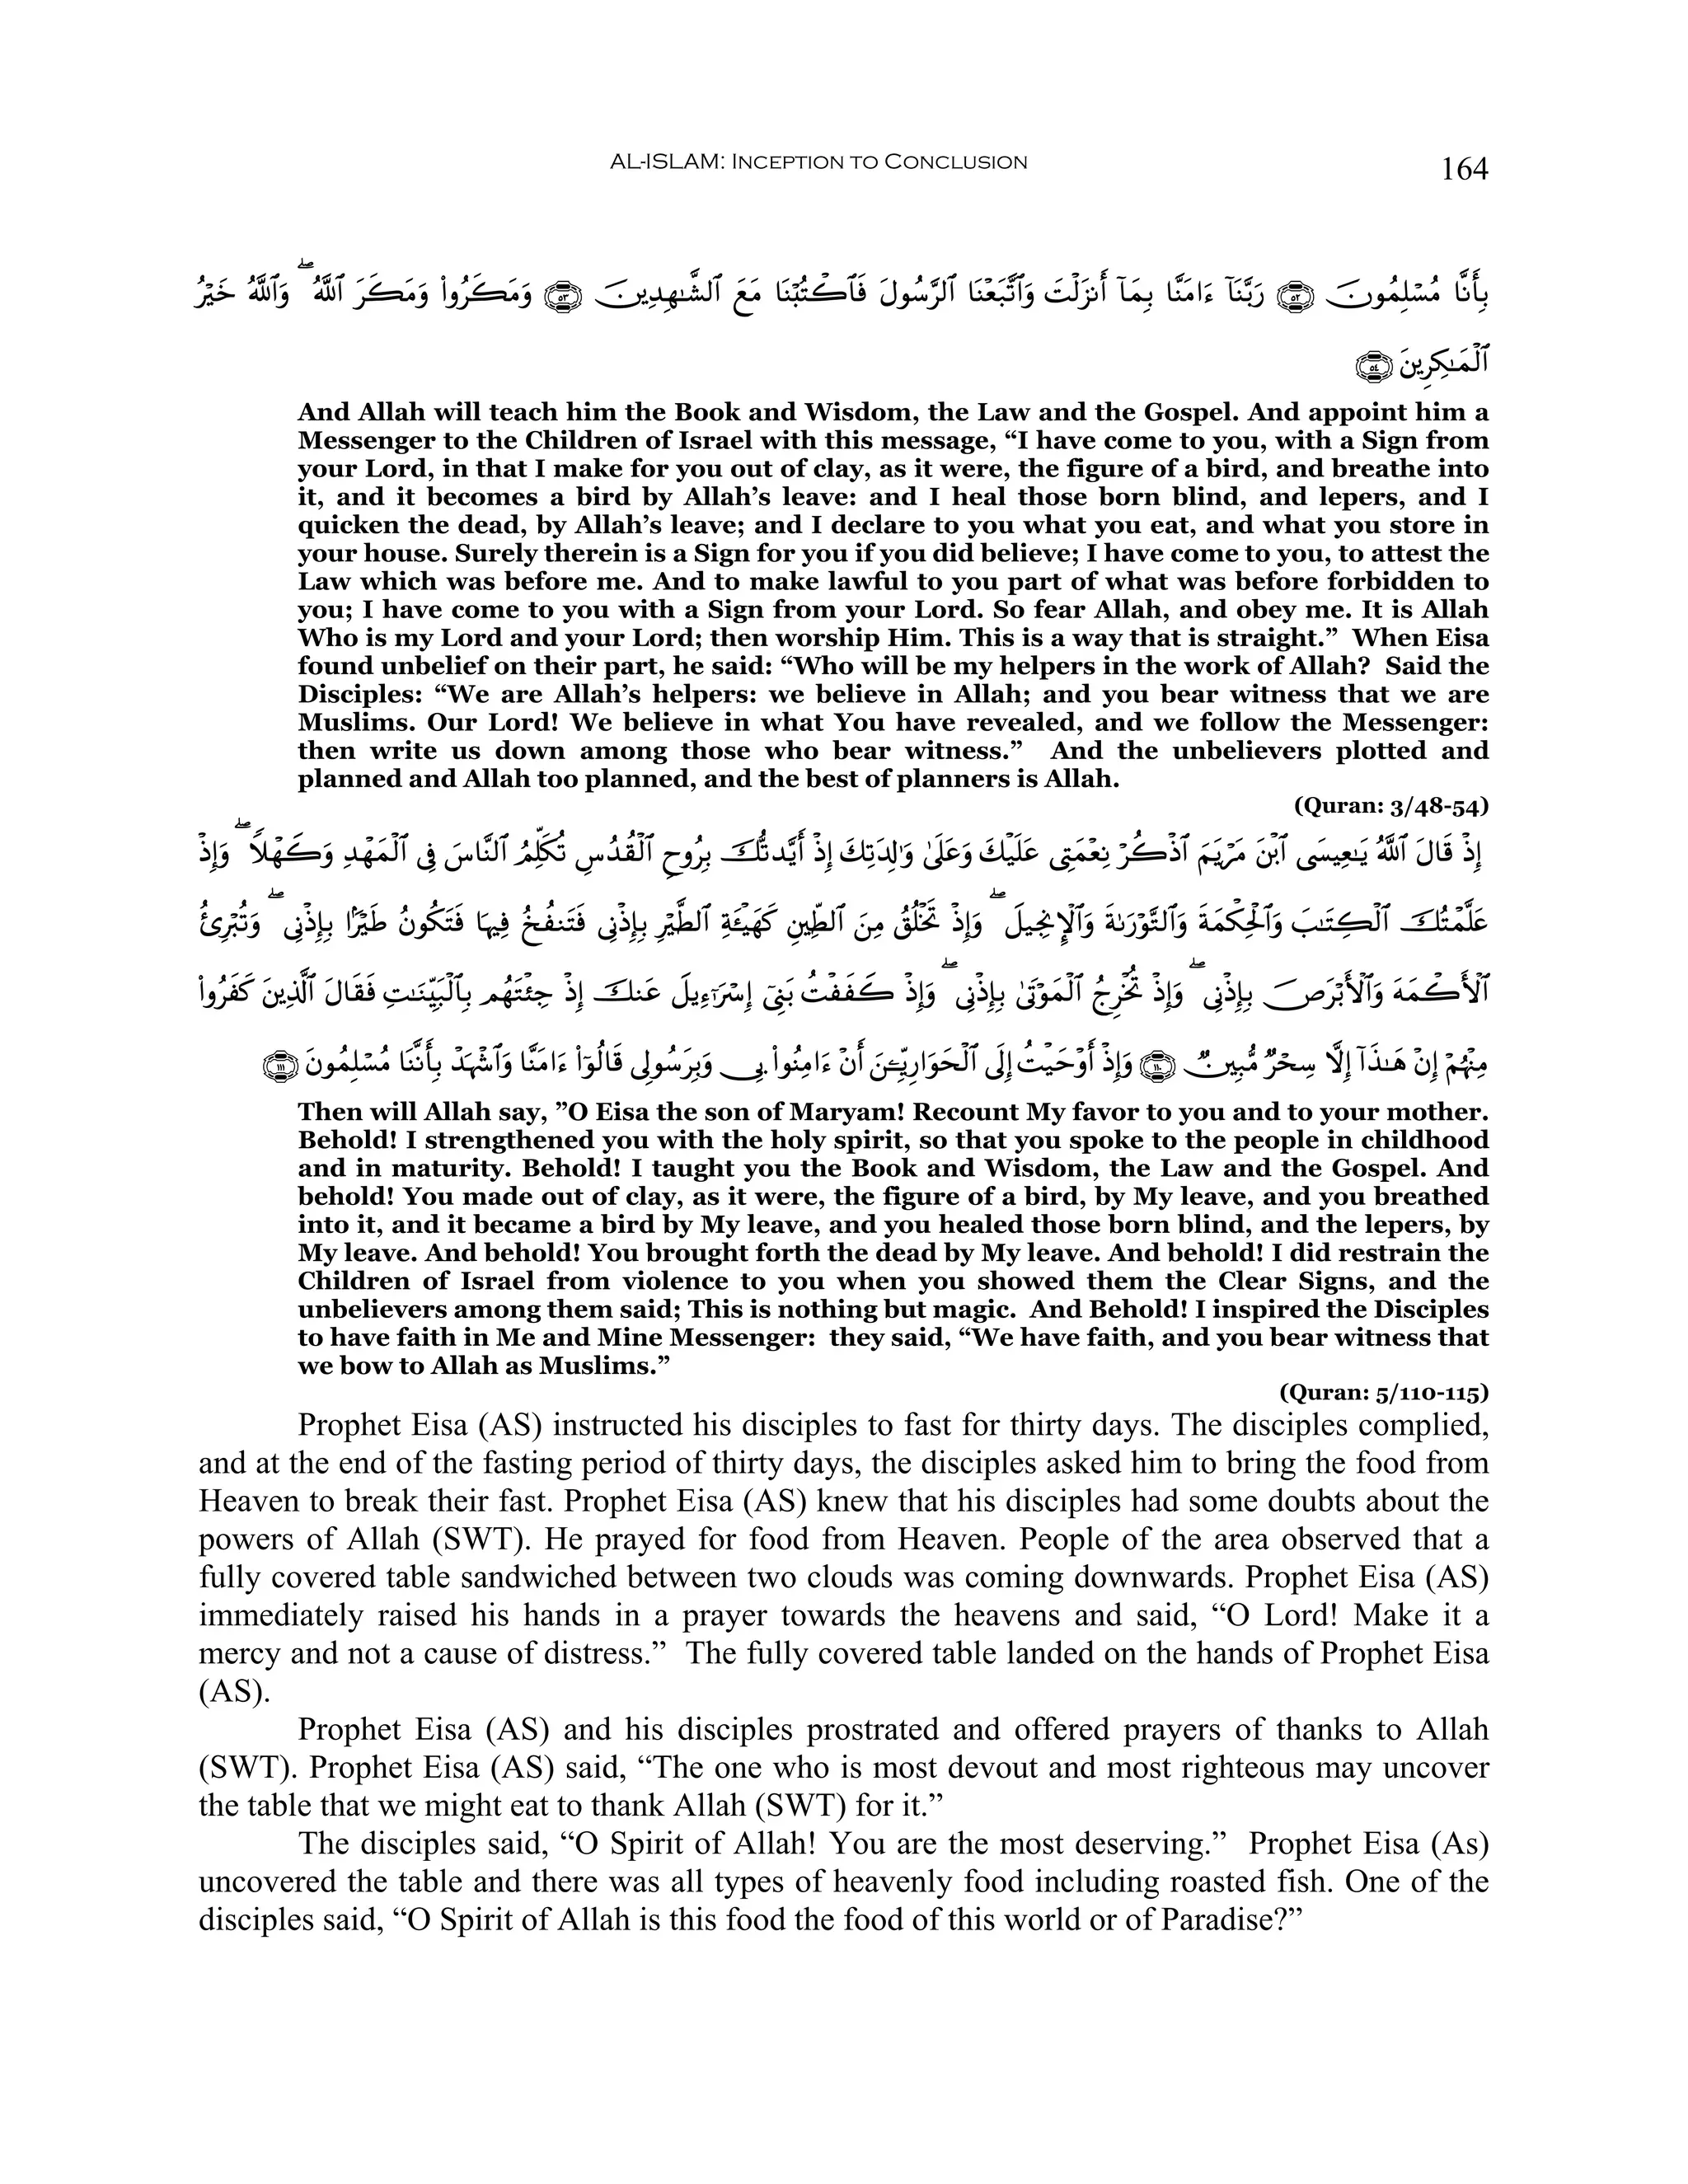 AL-ISLAM: INCEPTION TO CONCLUSION
164
بِأَنَّا مُسْلِمُونَ ﴿٥٢﴾ رَبَّنَآ ءَامَنَّا بِمَآ أَنزَلْتَ وَٱتَّبَعْنَا ٱلرَّسُولَ فَٱكْتُبْنَا مَعَ ٱلشَّـٰهِدِينَ ﴿٥٣﴾ وَمَكَرُوا۟ وَمَكَرَ ٱللَّهُ ۖ وَٱللَّهُ خَيْرُ
ٱلْمَـٰكِرِينَ ﴿٥٤﴾
And Allah will teach him the Book and Wisdom, the Law and the Gospel. And appoint him a
Messenger to the Children of Israel with this message, “I have come to you, with a Sign from
your Lord, in that I make for you out of clay, as it were, the figure of a bird, and breathe into
it, and it becomes a bird by Allah’s leave: and I heal those born blind, and lepers, and I
quicken the dead, by Allah’s leave; and I declare to you what you eat, and what you store in
your house. Surely therein is a Sign for you if you did believe; I have come to you, to attest the
Law which was before me. And to make lawful to you part of what was before forbidden to
you; I have come to you with a Sign from your Lord. So fear Allah, and obey me. It is Allah
Who is my Lord and your Lord; then worship Him. This is a way that is straight.”  When Eisa
found unbelief on their part, he said: “Who will be my helpers in the work of Allah?  Said the
Disciples: “We are Allah’s helpers: we believe in Allah; and you bear witness that we are
Muslims. Our Lord! We believe in what You have revealed, and we follow the Messenger:
then write us down among those who bear witness.”  And the unbelievers plotted and
planned and Allah too planned, and the best of planners is Allah.
(Quran: 3/48-54)
إِذْ قَالَ ٱللَّهُ يَـٰعِيسَى ٱبْنَ مَرْيَمَ ٱذْكُرْ نِعْمَتِى عَلَيْكَ وَعَلَىٰ وَٰلِدَتِكَ إِذْ أَيَّدتُّكَ بِرُوحِ ٱلْقُدُسِ تُكَلِّمُ ٱلنَّاسَ فِى ٱلْمَهْدِ وَكَهْلًا ۖ وَإِذْ
عَلَّمْتُكَ ٱلْكِتَـٰبَ وَٱلْحِكْمَةَ وَٱلتَّوْرَىٰةَ وَٱلْإِنجِيلَ ۖ وَإِذْ تَخْلُقُ مِنَ ٱلطِّينِ كَهَيْـَٔةِ ٱلطَّيْرِ بِإِذْنِى فَتَنفُخُ فِيهَا فَتَكُونُ طَيْرًۢا بِإِذْنِى ۖ وَتُبْرِئُ
ٱلْأَكْمَهَ وَٱلْأَبْرَصَ بِإِذْنِى ۖ وَإِذْ تُخْرِجُ ٱلْمَوْتَىٰ بِإِذْنِى ۖ وَإِذْ كَفَفْتُ بَنِىٓ إِسْرَٰٓءِيلَ عَنكَ إِذْ جِئْتَهُم بِٱلْبَيِّنَـٰتِ فَقَالَ ٱلَّذِينَ كَفَرُوا۟
مِنْهُمْ إِنْ هَـٰذَآ إِلَّا سِحْرٌ مُّبِينٌ ﴿١١٠﴾ وَإِذْ أَوْحَيْتُ إِلَى ٱلْحَوَارِيِّـۧنَ أَنْ ءَامِنُوا۟ بِى وَبِرَسُولِى قَالُوٓا۟ ءَامَنَّا وَٱشْهَدْ بِأَنَّنَا مُسْلِمُونَ ﴿١١١﴾
Then will Allah say, ”O Eisa the son of Maryam! Recount My favor to you and to your mother.
Behold! I strengthened you with the holy spirit, so that you spoke to the people in childhood
and in maturity. Behold! I taught you the Book and Wisdom, the Law and the Gospel. And
behold! You made out of clay, as it were, the figure of a bird, by My leave, and you breathed
into it, and it became a bird by My leave, and you healed those born blind, and the lepers, by
My leave. And behold! You brought forth the dead by My leave. And behold! I did restrain the
Children of Israel from violence to you when you showed them the Clear Signs, and the
unbelievers among them said; This is nothing but magic.  And Behold! I inspired the Disciples
to have faith in Me and Mine Messenger:  they said, “We have faith, and you bear witness that
we bow to Allah as Muslims.”
(Quran: 5/110-115)
Prophet Eisa (AS) instructed his disciples to fast for thirty days. The disciples complied,
and at the end of the fasting period of thirty days, the disciples asked him to bring the food from
Heaven to break their fast. Prophet Eisa (AS) knew that his disciples had some doubts about the
powers of Allah (SWT). He prayed for food from Heaven. People of the area observed that a
fully covered table sandwiched between two clouds was coming downwards. Prophet Eisa (AS)
immediately raised his hands in a prayer towards the heavens and said, “O Lord! Make it a
mercy and not a cause of distress.”  The fully covered table landed on the hands of Prophet Eisa
(AS).
Prophet Eisa (AS) and his disciples prostrated and offered prayers of thanks to Allah
(SWT). Prophet Eisa (AS) said, “The one who is most devout and most righteous may uncover
the table that we might eat to thank Allah (SWT) for it.”
The disciples said, “O Spirit of Allah! You are the most deserving.”  Prophet Eisa (As)
uncovered the table and there was all types of heavenly food including roasted fish. One of the
disciples said, “O Spirit of Allah is this food the food of this world or of Paradise?”